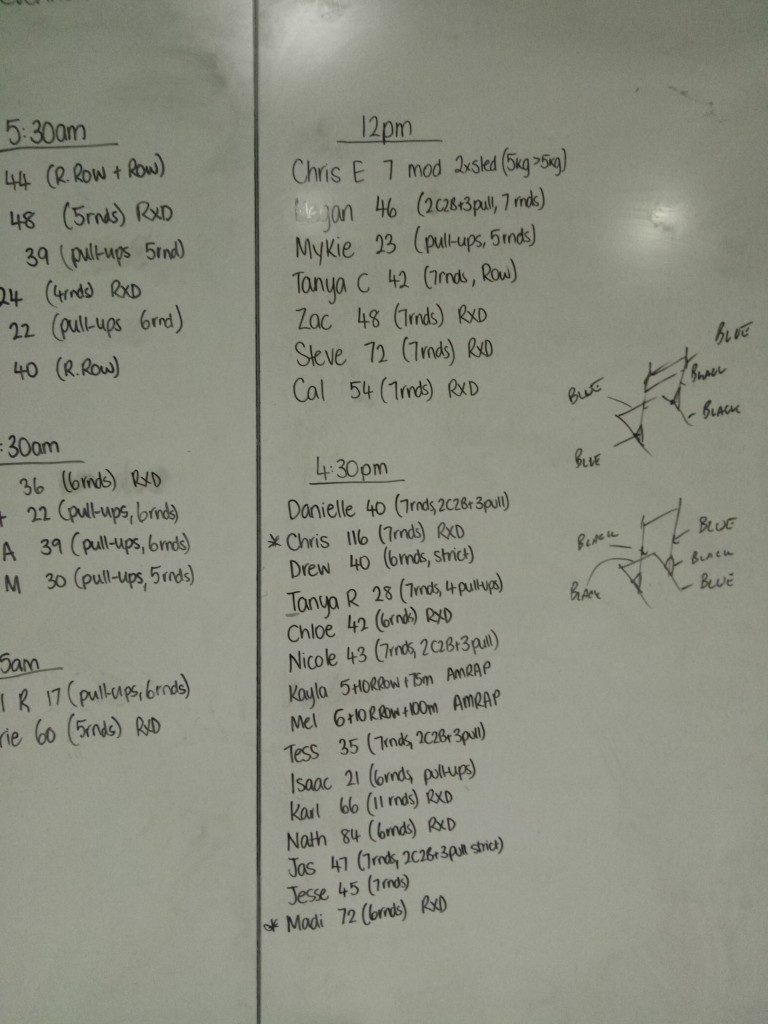 5:30am
44 (R.Row + Row)
48 (5rnds) RXD
39 (pull-ups 5rnd)
24 (4rnds) RXD
22 (pull-ups 6rnd)
40 (R.Row)
:30am
36 (6rnds) RXD
22 (pull-ups, 6rnds)
A 39 (pull-ups, 6rnds)
M 30 (pull-ups, 5rnds)
5am
R 17 (pull-ups, 6rnds)
rie 60 (5rnds) RXD
12pm
Chris E 7 mod 2xsled (5kg>5kg)
46 (2C2B+3pull, 7rnds)
Mykie 23 (pull-ups, 5rnds)
Tanya C 42 (7rnds, Row)
Zac 48 (7rnds) RXD
Steve 72 (7rnds) RXD
Cal 54 (7rnds) RXD
4:30pm
Danielle 40 (7rnds, 2C2B+3pull)
* Chris 116 (7rnds) RXD
Drew 40 (6rnds, strict)
Tanya R 28 (7rnds, 4 pull-ups)
Chloe 42 (6rnds) RXD
Nicole 43 (7rnds, 2C2B+3pull)
Kayla 5+10RRow+75m AMRAP
Mel 6+10R.Row+100m AMRAP
Tess 35 (7rnds, 2C2B+3pull)
Isaac 21 (6rnds, pull-ups)
Karl 66 (11rnds) RXD
Nath 84 (6rnds) RXD
Jas 47 (7rnds, 2C2B+3pull strict)
Jesse 45 (7rnds)
* Madi 72 (6rnds) RXD
BLUE
BLACK
BLUE
BLACK
BLUE
BLUE
BLACK
BLACK
BLACK
BLUE